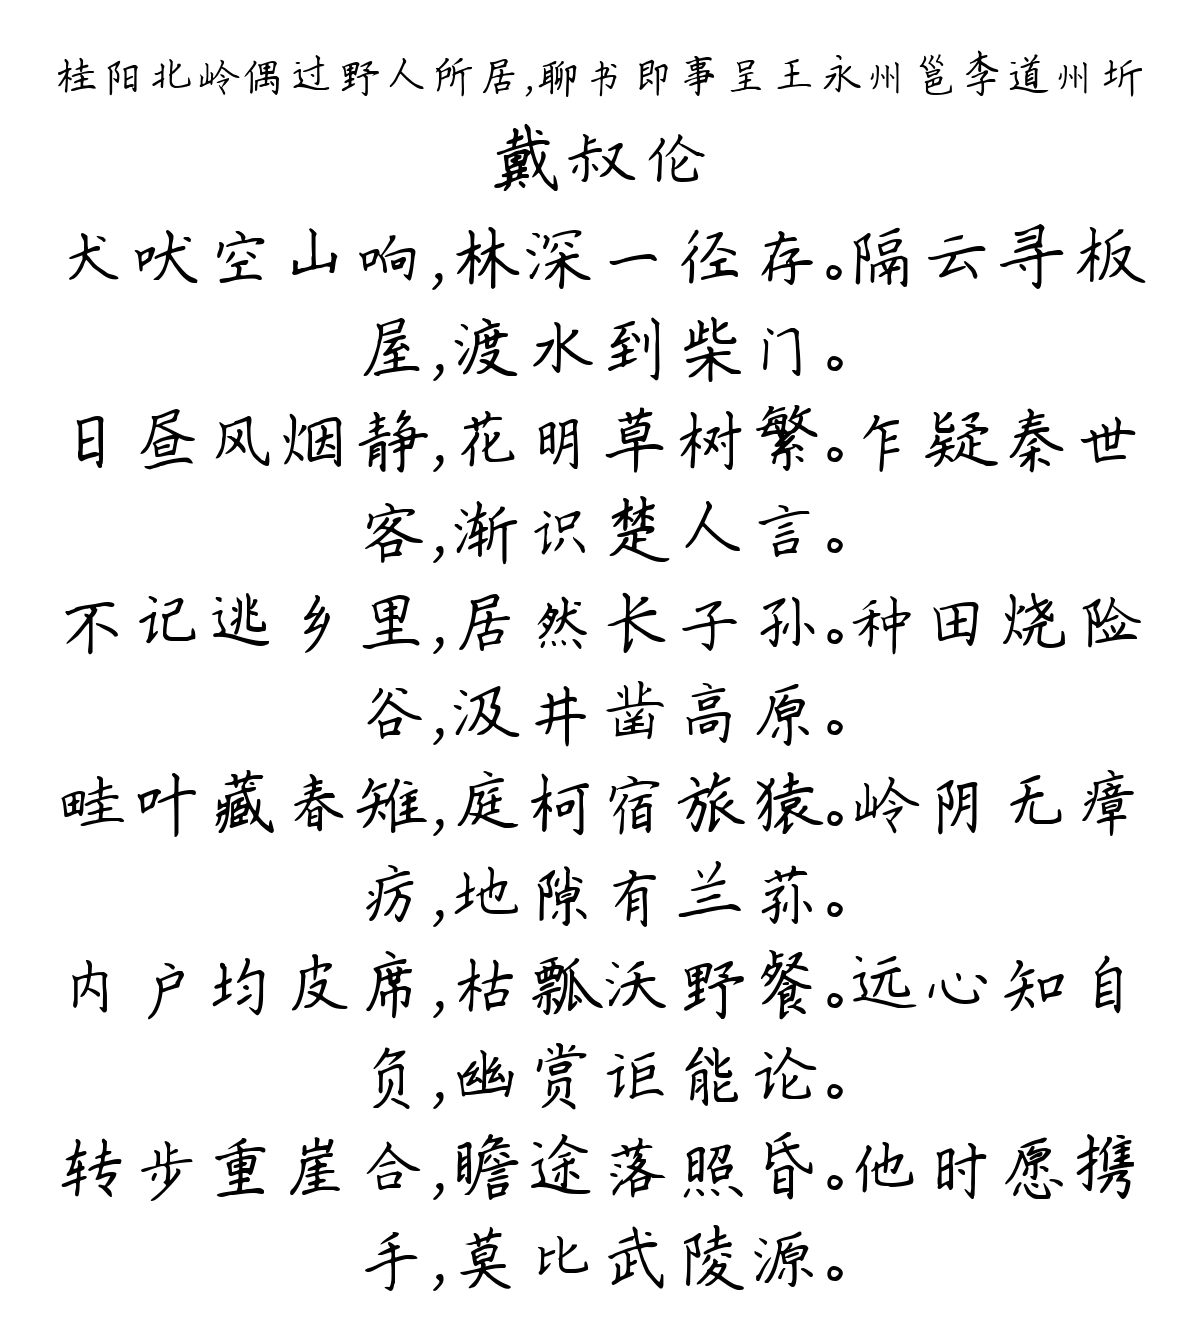 桂阳北岭偶过野人所居,聊书即事呈王永州邕李道州圻
戴叔伦
犬吠空山响,林深一径存。隔云寻板
屋,渡水到柴门。
日昼风烟静,花明草树繁。乍疑秦世
客,渐识楚人言。
不记逃乡里,居然长子孙。种田烧险
谷,汲井凿高原。
畦叶藏春雉,庭柯宿旅猿。岭阴无瘴
疠,地隙有兰荪。
内户均皮席,枯瓢沃野餐。远心知自
负,幽赏讵能论。
转步重崖合,瞻途落照昏。他时愿携
手,莫比武陵源。